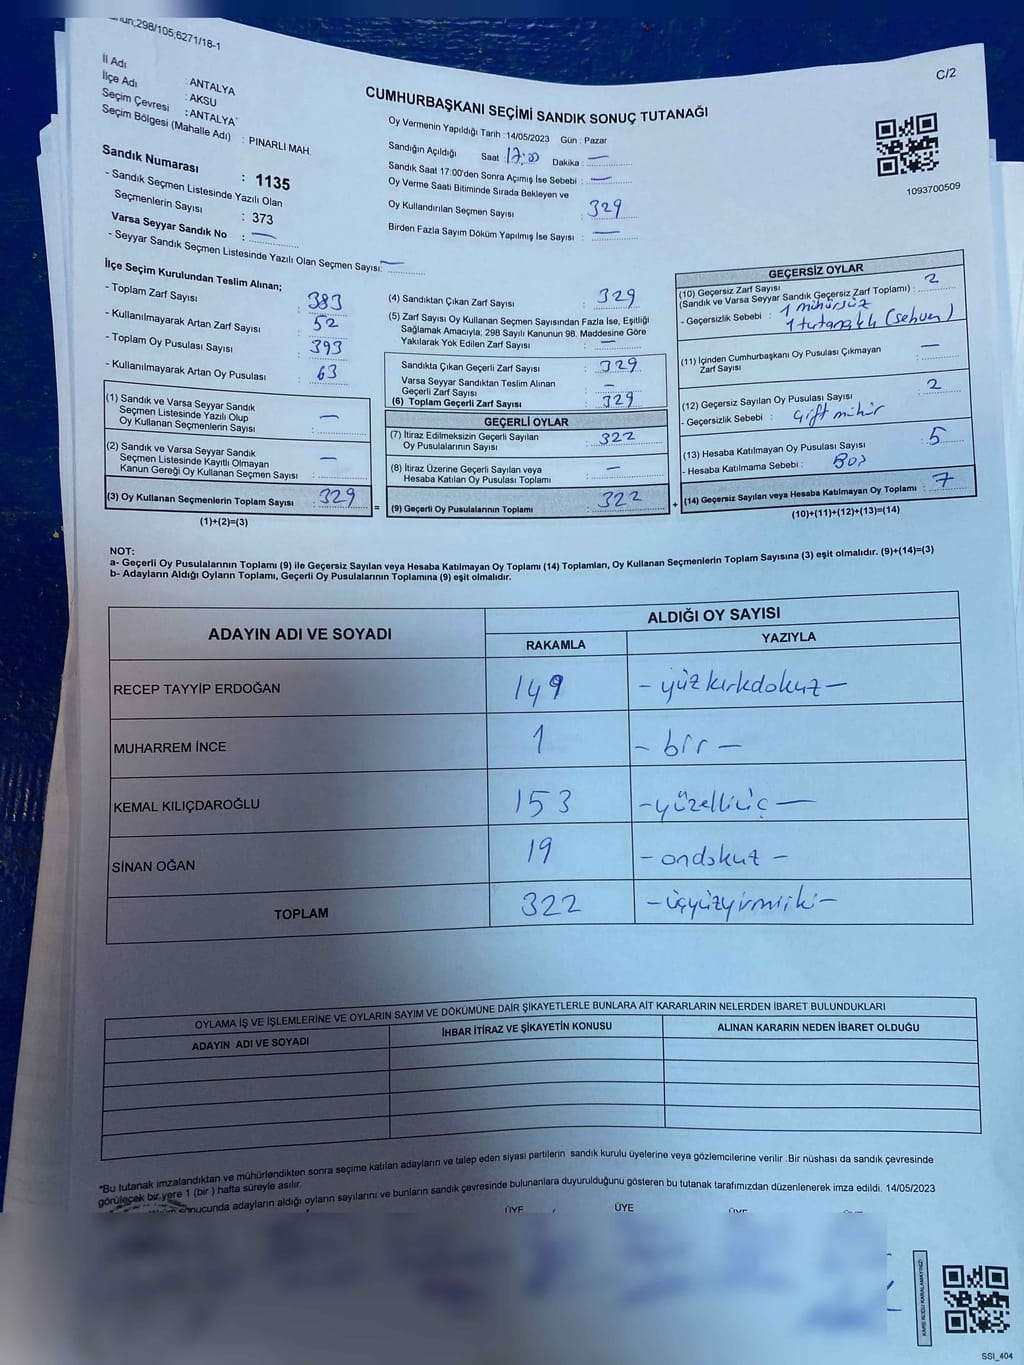 298/105;6271/18-1
C/2
İl Adı : ANTALYA
İlçe Adı : AKSU
Seçim Çevresi : ANTALYA
Seçim Bölgesi (Mahalle Adı) : PINARLI MAH.
Sandık Numarası : 1135
- Sandık Seçmen Listesinde Yazılı Olan
Seçmenlerin Sayısı : 373
Varsa Seyyar Sandık No : —
- Seyyar Sandık Seçmen Listesinde Yazılı Olan Seçmen Sayısı: —
CUMHURBAŞKANI SEÇİMİ SANDIK SONUÇ TUTANAĞI
Oy Vermenin Yapıldığı Tarih : 14/05/2023 Gün : Pazar
Sandığın Açıldığı Saat 17:00 Dakika : —
Sandık Saat 17:00'den Sonra Açımış İse Sebebi : —
Oy Verme Saati Bitiminde Sırada Bekleyen ve
Oy Kullandırılan Seçmen Sayısı : 329
Birden Fazla Sayım Döküm Yapılmış İse Sayısı : —
1093700509
İlçe Seçim Kurulundan Teslim Alınan;
- Toplam Zarf Sayısı : 383
- Kullanılmayarak Artan Zarf Sayısı : 52
- Toplam Oy Pusulası Sayısı : 393
- Kullanılmayarak Artan Oy Pusulası : 63
(1) Sandık ve Varsa Seyyar Sandık
Seçmen Listesinde Yazılı Olup
Oy Kullanan Seçmenlerin Sayısı : —
(2) Sandık ve Varsa Seyyar Sandık
Seçmen Listesinde Kayıtlı Olmayan
Kanun Gereği Oy Kullanan Seçmen Sayısı : —
(3) Oy Kullanan Seçmenlerin Toplam Sayısı : 329
(1)+(2)=(3)
(4) Sandıktan Çıkan Zarf Sayısı : 329
(5) Zarf Sayısı Oy Kullanan Seçmen Sayısından Fazla İse, Eşitliği
Sağlamak Amacıyla; 298 Sayılı Kanunun 98. Maddesine Göre
Yakılarak Yok Edilen Zarf Sayısı : —
Sandıkta Çıkan Geçerli Zarf Sayısı : 329
Varsa Seyyar Sandıktan Teslim Alınan
Geçerli Zarf Sayısı : —
(6) Toplam Geçerli Zarf Sayısı : 329
GEÇERLİ OYLAR
(7) İtiraz Edilmeksizin Geçerli Sayılan
Oy Pusulalarının Sayısı : 322
(8) İtiraz Üzerine Geçerli Sayılan veya
Hesaba Katılan Oy Pusulası Toplamı : —
= (9) Geçerli Oy Pusulalarının Toplamı : 322
GEÇERSİZ OYLAR
(10) Geçersiz Zarf Sayısı
(Sandık ve Varsa Seyyar Sandık Geçersiz Zarf Toplamı) : 2
- Geçersizlik Sebebi : 1 mühürsüz
1 tutanaklı (sehven)
(11) İçinden Cumhurbaşkanı Oy Pusulası Çıkmayan
Zarf Sayısı : —
(12) Geçersiz Sayılan Oy Pusulası Sayısı : 2
- Geçersizlik Sebebi : Çift mühür
(13) Hesaba Katılmayan Oy Pusulası Sayısı : 5
- Hesaba Katılmama Sebebi : Boş
+ (14) Geçersiz Sayılan veya Hesaba Katılmayan Oy Toplamı : 7
(10)+(11)+(12)+(13)=(14)
NOT:
a- Geçerli Oy Pusulalarının Toplamı (9) ile Geçersiz Sayılan veya Hesaba Katılmayan Oy Toplamı (14) Toplamları, Oy Kullanan Seçmenlerin Toplam Sayısına (3) eşit olmalıdır. (9)+(14)=(3)
b- Adayların Aldığı Oyların Toplamı, Geçerli Oy Pusulalarının Toplamına (9) eşit olmalıdır.
ADAYIN ADI VE SOYADI ALDIĞI OY SAYISI
RAKAMLA YAZIYLA
RECEP TAYYİP ERDOĞAN 149 - yüzkırkdokuz -
MUHARREM İNCE 1 - bir -
KEMAL KILIÇDAROĞLU 153 - yüzelliüç -
SİNAN OĞAN 19 - ondokuz -
TOPLAM 322 - üçyüzyirmiiki -
OYLAMA İŞ VE İŞLEMLERİNE VE OYLARIN SAYIM VE DÖKÜMÜNE DAİR ŞİKAYETLERLE BUNLARA AİT KARARLARIN NELERDEN İBARET BULUNDUKLARI
ADAYIN ADI VE SOYADI İHBAR İTİRAZ VE ŞİKAYETİN KONUSU ALINAN KARARIN NEDEN İBARET OLDUĞU
*Bu tutanak imzalandıktan ve mühürlendikten sonra seçime katılan adayların ve talep eden siyasi partilerin sandık kurulu üyelerine veya gözlemcilerine verilir .Bir nüshası da sandık çevresinde
görülecek bir yere 1 (bir ) hafta süreyle asılır.
sonucunda adayların aldığı oyların sayılarını ve bunların sandık çevresinde bulunanlara duyurulduğunu gösteren bu tutanak tarafımızdan düzenlenerek imza edildi. 14/05/2023
ÜYE ÜYE ÜYE
KARE KODU KARALAMAYINIZ!
SSI_404